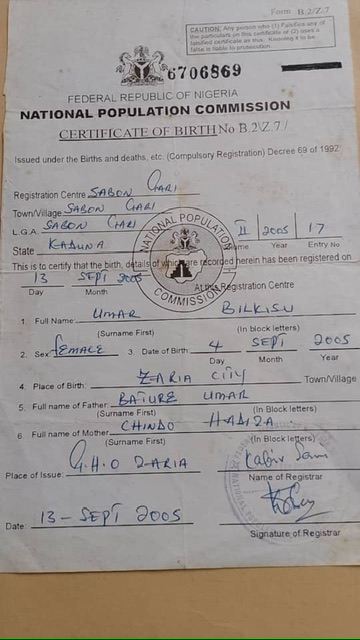 Form B.2/Z.7
CAUTION: Any person who (1) Falsifies any of
the particulars on this certificate or (2) uses a
falsified certificate as true. Knowing it to be
false is liable to prosecution.
6706869
FEDERAL REPUBLIC OF NIGERIA
NATIONAL POPULATION COMMISSION
CERTIFICATE OF BIRTH No B.2/Z.7/
Issued under the Births and deaths, etc. (Compulsory Registration) Decree 69 of 1992
Registration Centre SABON GARI
Town/Village SABON GARI
L.G.A. SABON GARI II 2005 17
State KADUNA Volume Year Entry No
NATIONAL POPULATION COMMISSION
This is to certify that the birth, details of which are recorded herein has been registered on
13 SEPT 2005 At this Registration Centre
Day Month
1. Full Name: UMAR BILKISU
(Surname First) (In block letters)
2. Sex: FEMALE 3. Date of Birth: 4 SEPT 2005
Day Month Year
4. Place of Birth: ZARIA CITY Town/Village
5. Full name of Father: BATURE UMAR
(Surname First) (In Block letters)
6. Full name of Mother: CHINDO HADIZA
(Surname First) (In Block letters)
Place of Issue: G.H.O ZARIA Kabir Sani
Name of Registrar
Date: 13 - SEPT 2005
Signature of Registrar